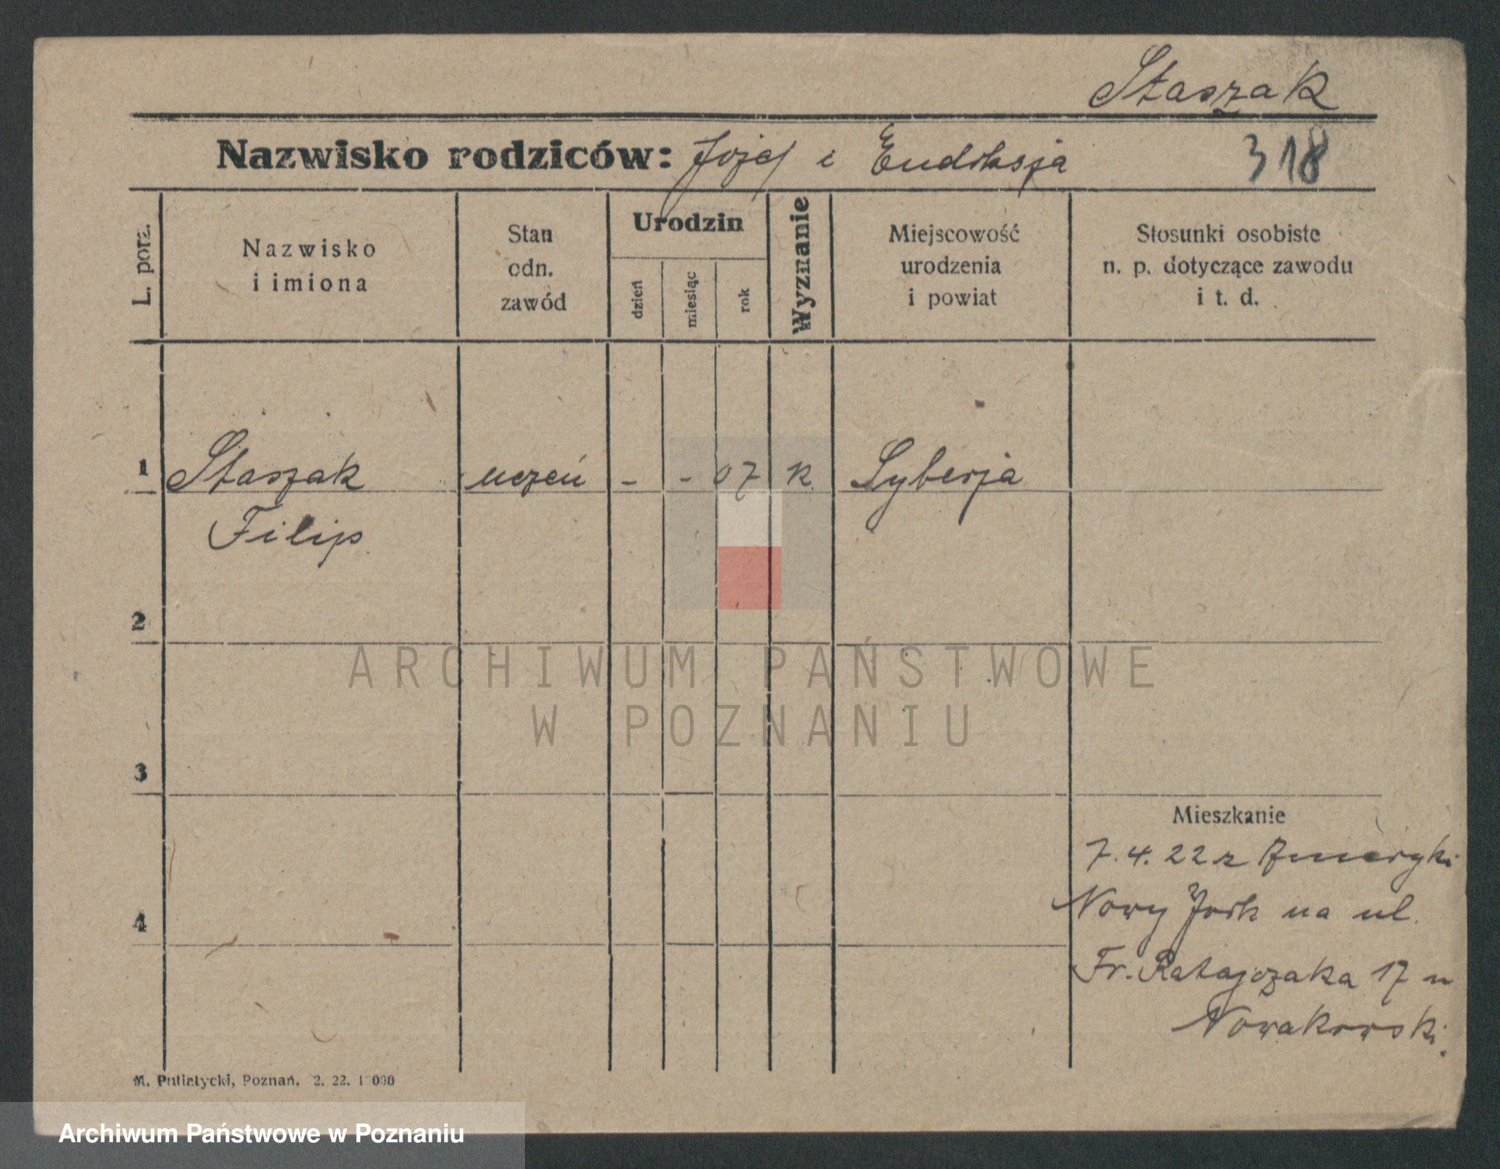 Staszak
Nazwisko rodziców: Józef i Eudoksja 318
L. porz.
Nazwisko
i imiona
Stan
odn.
zawód
Urodzin
dzień
miesiąc
rok
Wyznanie
Miejscowość
urodzenia
i powiat
Stosunki osobiste
n. p. dotyczące zawodu
i t. d.
1 Staszak uczeń - - 07 k. Syberja
Filip
2
ARCHIWUM PAŃSTWOWE
W POZNANIU
3
4
Mieszkanie
7.4.22 z Ameryki
Nowy Jork na ul.
Fr. Ratajczaka 17 u
Nowakowski.
M. Putiatycki, Poznań. 2. 22. 1 000
Archiwum Państwowe w Poznaniu